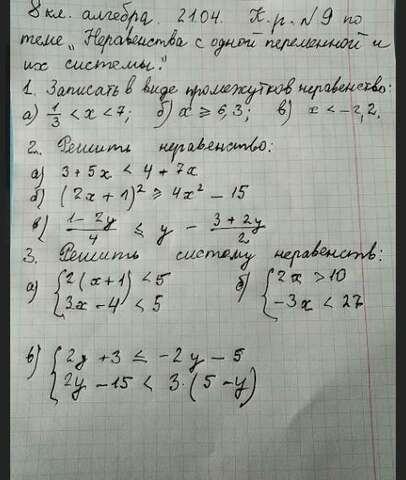 8 кл. алгебра. 21.04. К.р. №9 по
теме „Неравенства с одной переменной и
их системы."
1. Записать в виде промежутков неравенство:
а) 1/3 < x < 7; б) x ⩾ 6,3; в) x < -2,2.
2. Решить неравенство:
а) 3 + 5x < 4 + 7x
б) (2x + 1)² ⩾ 4x² - 15
в) (1 - 2y)/4 ≤ y - (3 + 2y)/2
3. Решить систему неравенств:
а) { 2(x+1) < 5 б) { 2x > 10
3x - 4 < 5 -3x < 27
в) { 2y + 3 ≤ -2y - 5
2y - 15 < 3·(5 - y)